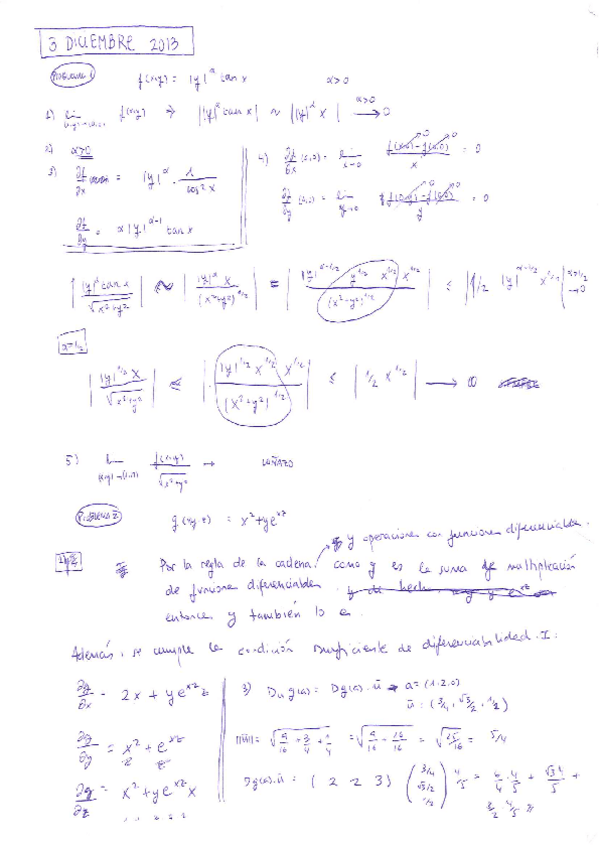 3 DICIEMBRE 2013
Problema 1 f(x,y) = |y|^α tan x α>0
1) lim (x,y)→(0,0) f(x,y) ⇒ ||y|^α tan x| ~ ||y|^α x| →^{α>0} 0
2) α>0
3) ∂f/∂x = |y|^α · 1/cos² x
∂f/∂y = α |y|^{α-1} tan x
4) ∂f/∂x (0,0) = lim x→0 (f(x,0) - f(0,0))/x = 0
∂f/∂y (0,0) = lim y→0 (f(0,y) - f(0,0))/y = 0
| |y|^α tan x / √(x²+y²) | ~ | |y|^α x / (x²+y²)^{1/2} | = | |y|^{α-1/2} y^{1/2} x^{1/2} x^{1/2} / (x²+y²)^{1/2} | ≤ | 1/2 |y|^{α-1/2} x^{1/2} | →^{α>1/2} 0
α=1/2
| |y|^{1/2} x / √(x²+y²) | ≤ | |y|^{1/2} x^{1/2} x^{1/2} / (x²+y²)^{1/2} | ≤ | 1/2 x^{1/2} | → 0
5) lim f(x,y) / √(x²+y²) →
Problema 2 g(x,y,z) = x²+ye^{xz}
y operaciones con funciones diferenciables.
Por la regla de la cadena. como g es la suma y multiplicación
de funciones diferenciables
entonces g también lo es.
Además, se cumple la condición suficiente de diferenciabilidad I:
∂g/∂x = 2x + ye^{xz} z
∂g/∂y = x² + e^{xz}
∂g/∂z = x² + ye^{xz} x
3) Du g(a) = Dg(a)·ū a = (1,2,0)
ū = (3/4, √3/2, 1/2)
||ū|| = √(9/16 + 3/4 + 1/4) = √(9/16 + 16/16) = √(25/16) = 5/4
Dg(a)·ū = (2 2 3) (3/4 √3/2 1/2) 4/5